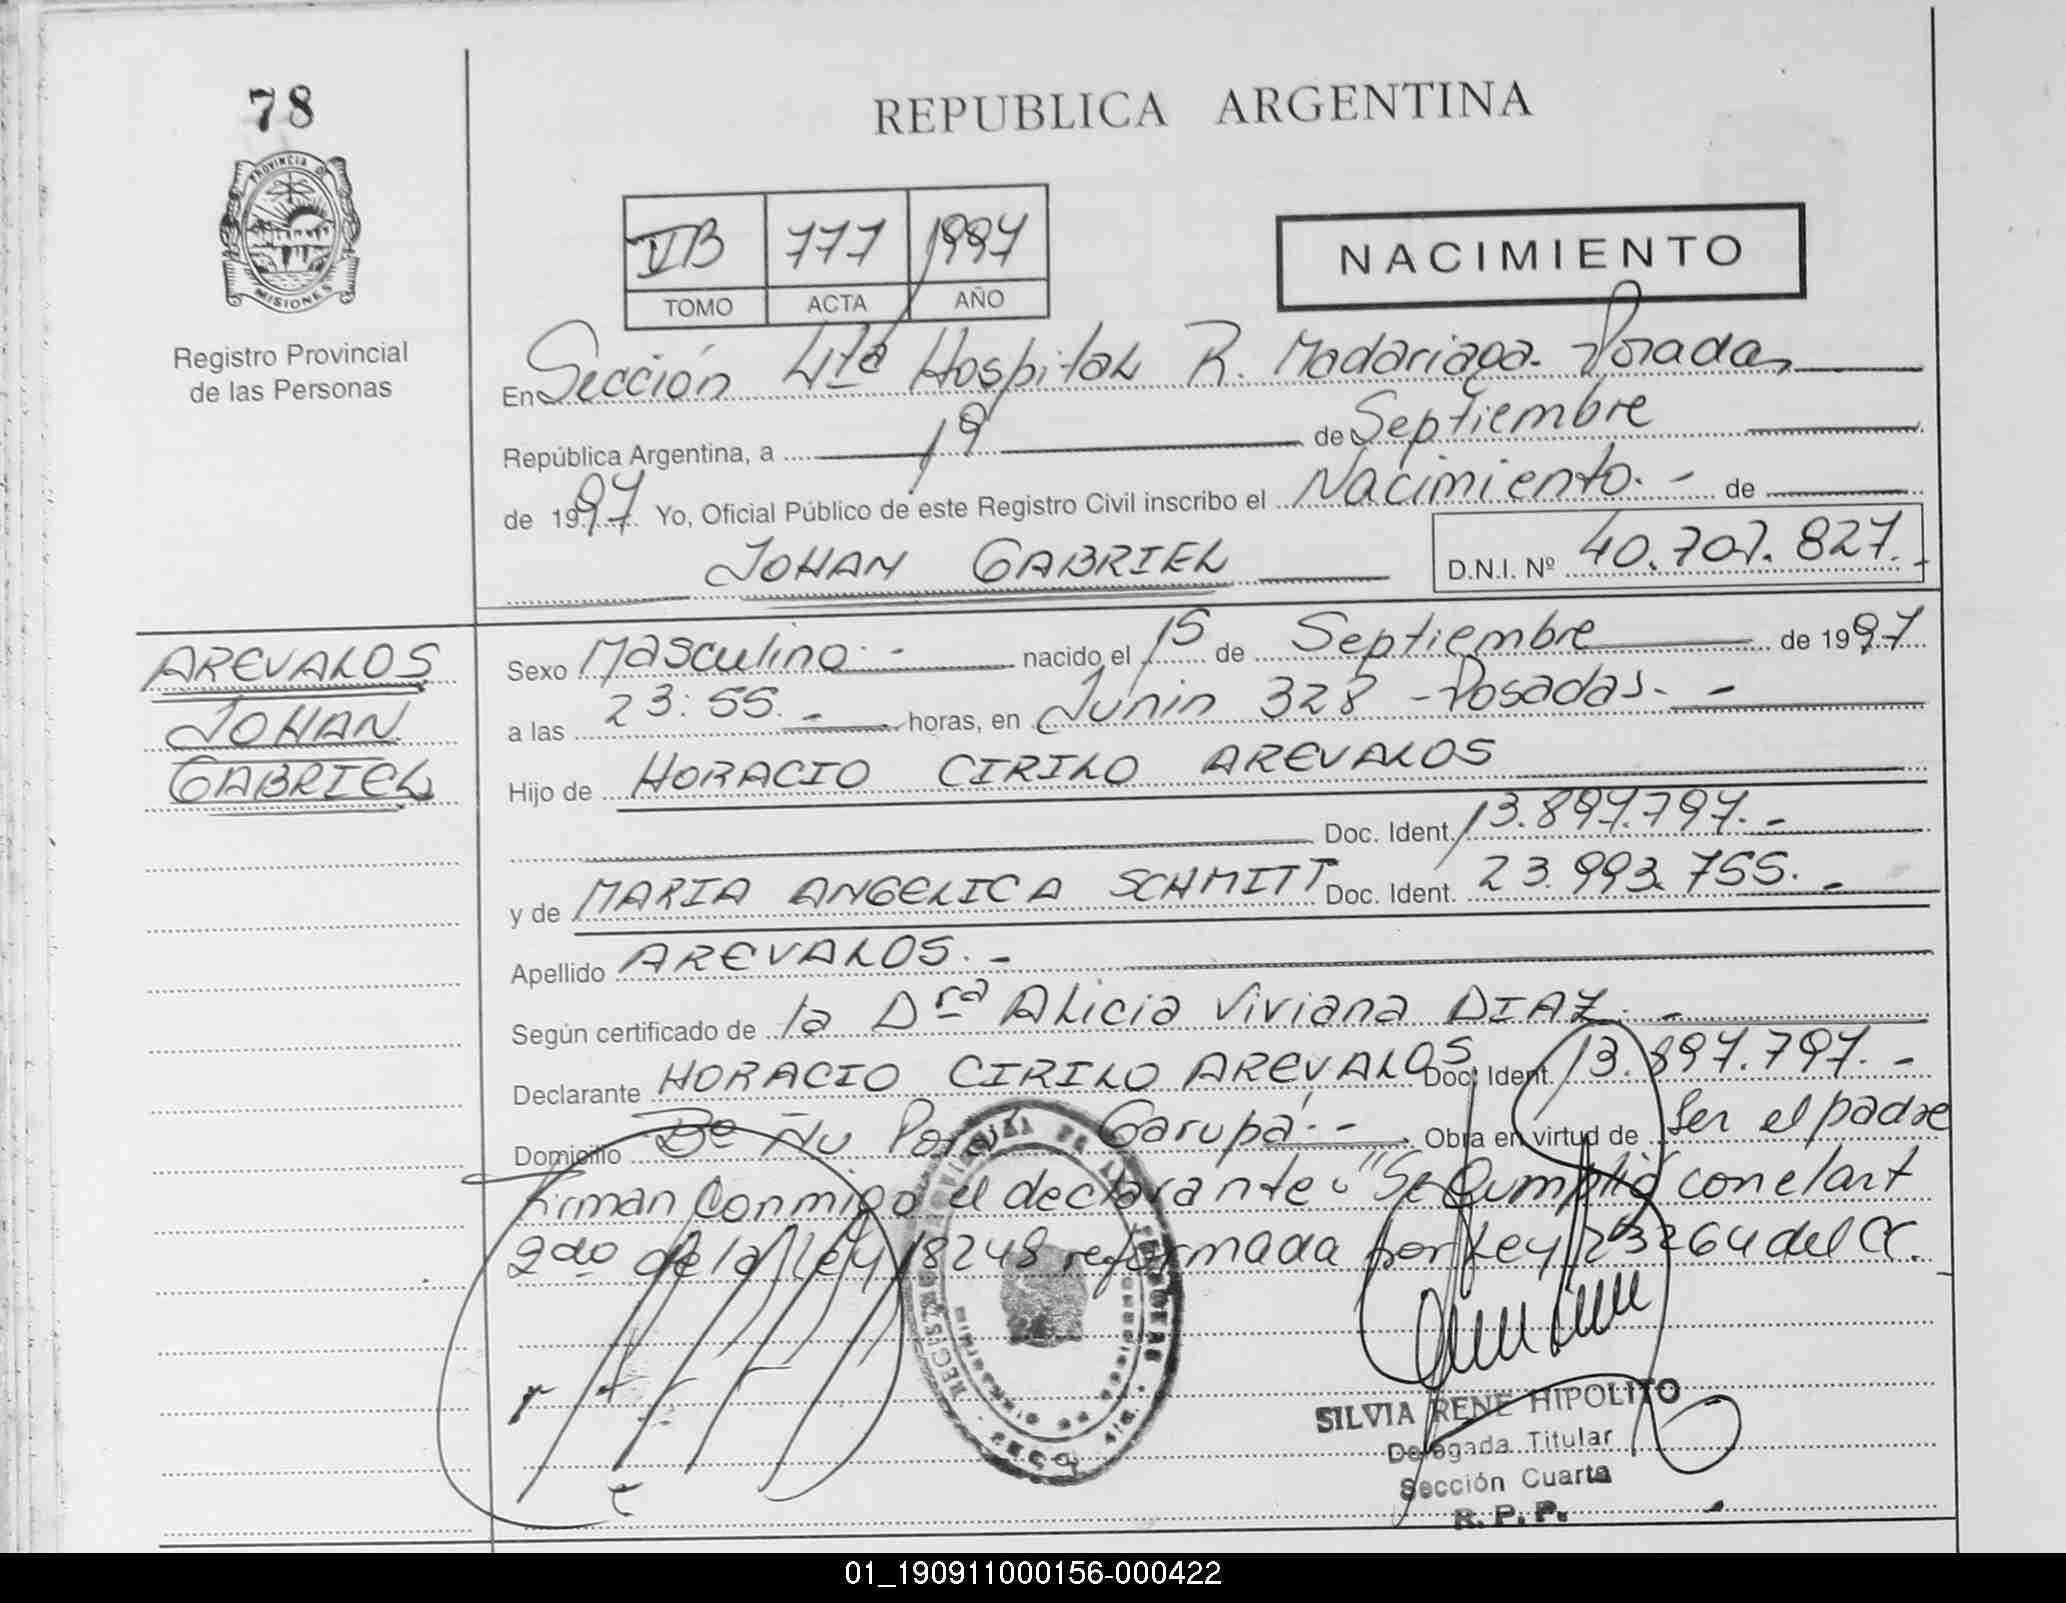 78
PROVINCIA D
MISIONES
Registro Provincial
de las Personas
REPUBLICA ARGENTINA
VB 777 1997
TOMO ACTA AÑO
NACIMIENTO
En Sección 4ta Hospital R. Madariaga - Posadas
República Argentina, a 19 de Septiembre
de 1997 Yo, Oficial Público de este Registro Civil inscribo el Nacimiento. - de
JOHAN GABRIEL D.N.I. Nº 40.707.827.
AREVALOS
JOHAN
GABRIEL
Sexo Masculino. - nacido el 15 de Septiembre de 1997
a las 23:55. - horas, en Junin 328 - Posadas. -
Hijo de HORACIO CIRILO AREVALOS
Doc. Ident. 13.897.797. -
y de MARIA ANGELICA SCHMITT Doc. Ident. 23.993.755. -
Apellido AREVALOS. -
Según certificado de la Dra Alicia Viviana DIAZ. -
Declarante HORACIO CIRILO AREVALOS Doc. Ident. 13.897.797. -
Domicilio Bº Ñu Porá Garupá. - Obra en virtud de Ser el padre
Firman conmigo el declarante. "Se Cumplió con el art
2do de la ley 18248 reformada por Ley 23264 del CC.
SILVIA RENE HIPOLITO
Delegada Titular
Sección Cuarta
R. P. P.
01_190911000156-000422